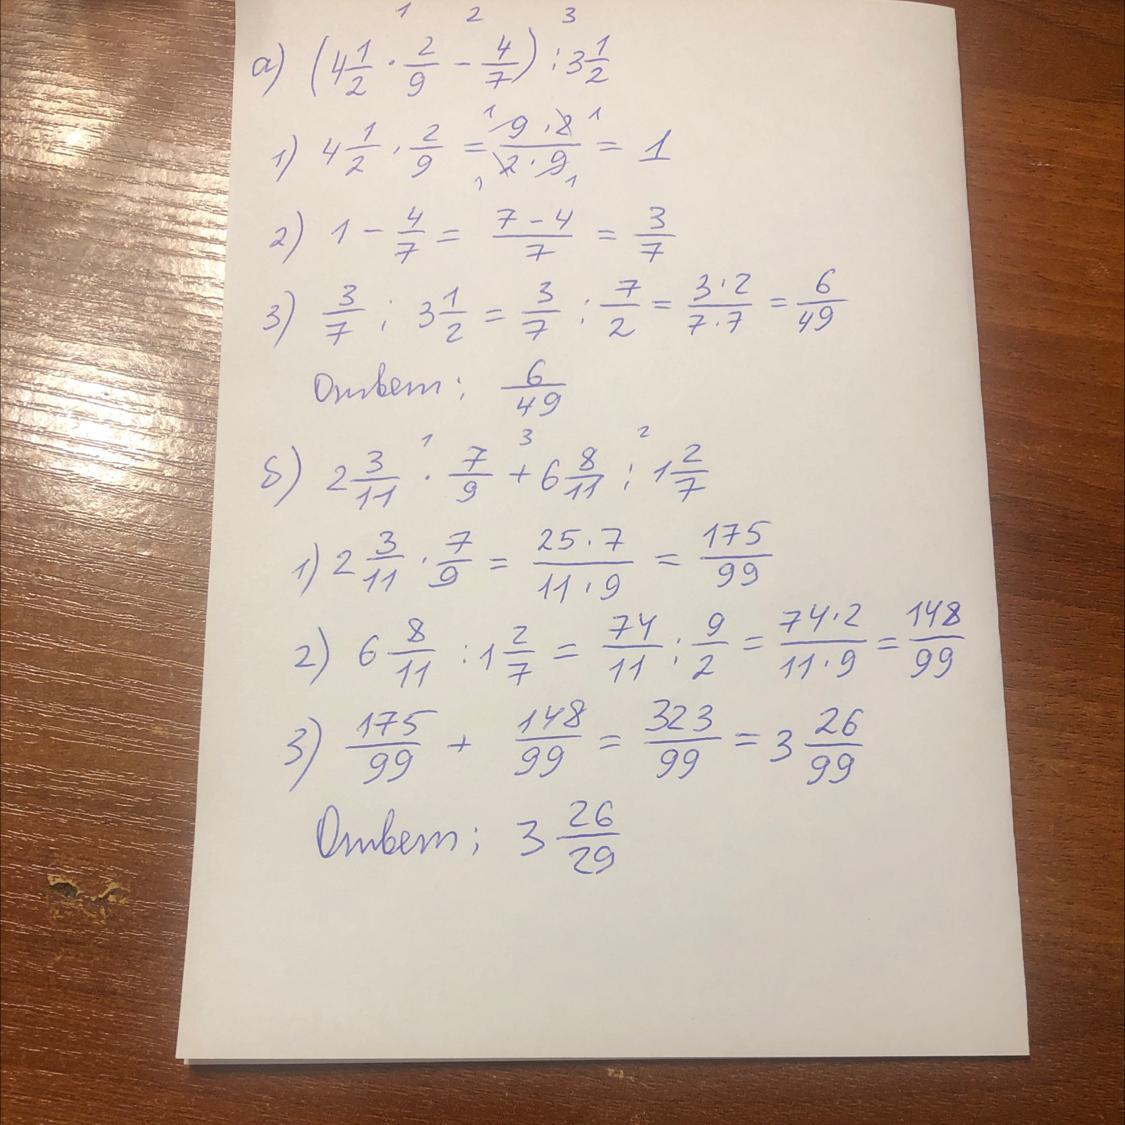 1 2 3
а) (4 1/2 · 2/9 - 4/7) : 3 1/2
1) 4 1/2 · 2/9 = 9·2/2·9 = 1
2) 1 - 4/7 = 7-4/7 = 3/7
3) 3/7 : 3 1/2 = 3/7 : 7/2 = 3·2/7·7 = 6/49
Ответ: 6/49
1 3 2
б) 2 3/11 · 7/9 + 6 8/11 : 1 2/7
1) 2 3/11 · 7/9 = 25·7/11·9 = 175/99
2) 6 8/11 : 1 2/7 = 74/11 : 9/2 = 74·2/11·9 = 148/99
3) 175/99 + 148/99 = 323/99 = 3 26/99
Ответ: 3 26/29